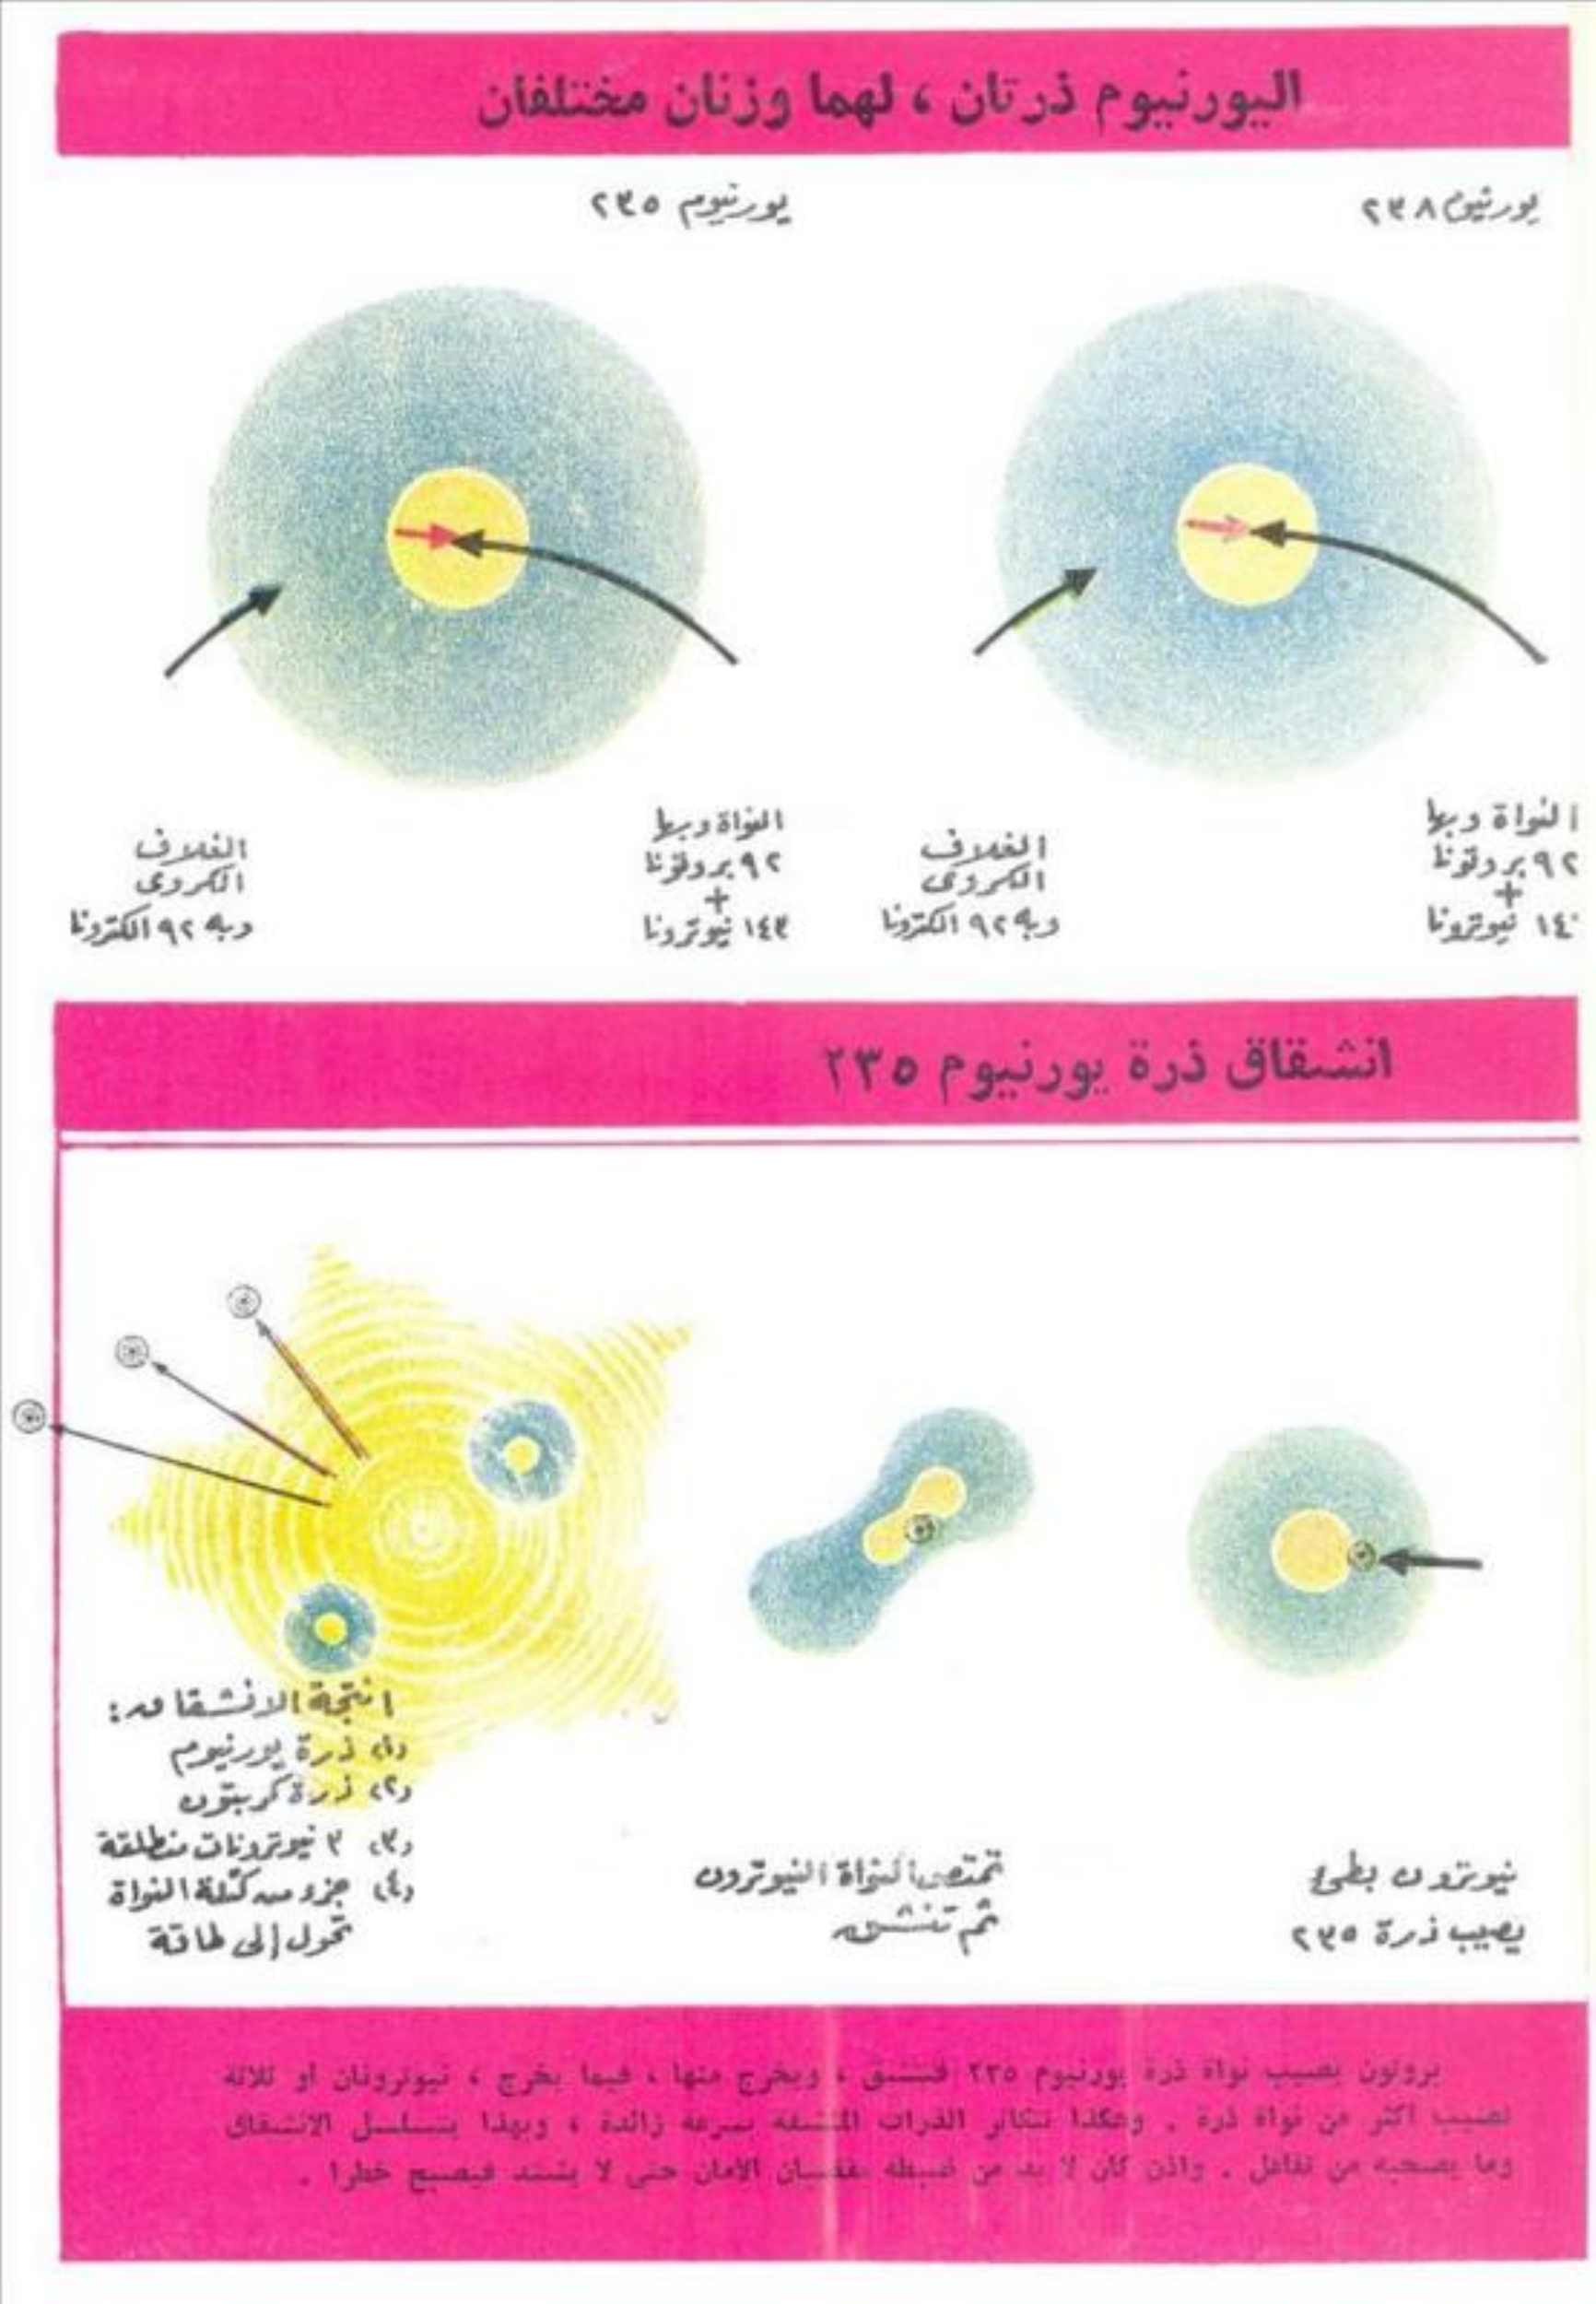 اليورنيوم ذرتان ، لهما وزنان مختلفان
يورنيوم ٢٣٨
يورنيوم ٢٣٥
النواة وبها
٩٢ بروتونا
+
نيوترونا
الغلاف
الكروى
وبه ٩٢ الكترونا
النواة وبها
٩٢ بروتونا
+
١٤٣ نيوترونا
الغلاف
الكروى
وبه ٩٢ الكترونا
انشقاق ذرة يورنيوم ٢٣٥
نيوترون بطئ
يصيب ذرة ٢٣٥
تمتص النواة النيوترون
ثم تنشق
انتجة الانشقاق :
(١) ذرة يورنيوم
(٢) ذرة كربتون
(٣) ٣ نيوترونات منطلقة
(٤) جزء من كتلة النواة
تحول إلى طاقة
بروتون يصيب نواة ذرة يورنيوم ٢٣٥ فتنشق ، ويخرج منها ، فيما يخرج ، نيوترونان أو ثلاثة
تصيب أكثر من نواة ذرة . وهكذا تتكاثر الذرات المنشقة بسرعة زائدة ، وبهذا يتسلسل الانشقاق
وما يصحبه من تفاعل . واذن كان لا بد من ضبطه بقضبان الأمان حتى لا يشتد فيصبح خطرا .